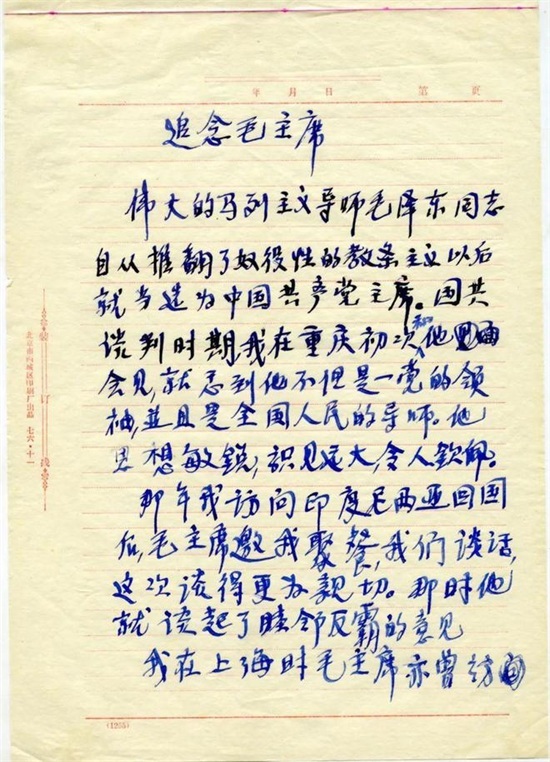 年 月 日 第 页
追念毛主席
伟大的马列主义导师毛泽东同志
自从推翻了奴役性的教条主义以后
就当选为中国共产党主席。国共
谈判时期,我在重庆初次和他
会见,就感到他不但是一党的领
袖,並且是全国人民的导师。他
思想敏锐,识见远大,令人钦佩。
那年我访问印度尼西亚回国
后,毛主席邀我聚餐,我们谈话,
这次谈得更为亲切。那时他
就谈起了睦邻反霸的意见
我在上海时毛主席亦曾访
装订线
北京市西城区印刷厂出品 七六·十一
(1205)